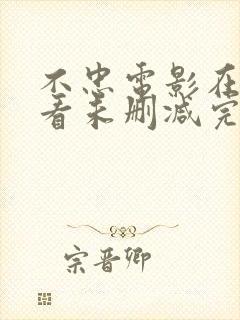 不忠电影在
看未删减完
宗晋卿